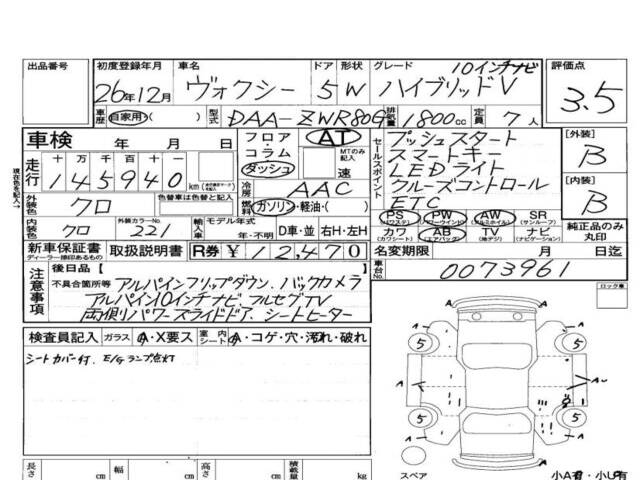 出品番号 初度登録年月 車名 ドア 形状 グレード 10インチナビ 評価点
26年12月 ヴォクシー 5 W ハイブリッドV 3.5
車歴 自家用・( ) 型式 DAA-ZWR80G 排気量 1800cc 定員 7人
車検 年 月 日 フロア・コラム・ダッシュ AT MTのみ記入 速
セールスポイント プッシュスタート
スマートキー
LEDライト
クルーズコントロール
ETC
[外装] B
[内装] B
現在色を記入→
走行 十 万 千 百 十 一
145940 km
冷房 AAC
外装色 クロ 色替車は色替と記入 燃料 ガソリン・軽油・( )
内装色 クロ 外装カラーNo. 221 輸入車 モデル年式 年・不明 D車・並 右H・左H
PS PW AW SR
(パワステ) (パワーウインド) (アルミホイル) (サンルーフ)
カワ AB TV ナビ
(カワシート) (エアバッグ) (地デジ) (ナビゲーション)
純正品のみ丸印
新車保証書 取扱説明書 R券 ¥12,470
ディーラー捺印あるもの
名変期限 月 日迄
車台No. 0073961
注意事項 後日品[ ]
不具合箇所等 アルパインフリップダウン、バックカメラ
アルパイン10インチナビ、フルセグTV
両側パワースライドドア、シートヒーター
ロック車
検査員記入 ガラス A・X要ス 室内シート A・コゲ・穴・汚れ・破れ
シートカバー付、E/Gランプ点灯
A A
5 5
A A
A AU
5 5
A
スペア 小A有・小U有
長さ cm 幅 cm 高さ cm 積載量 kg